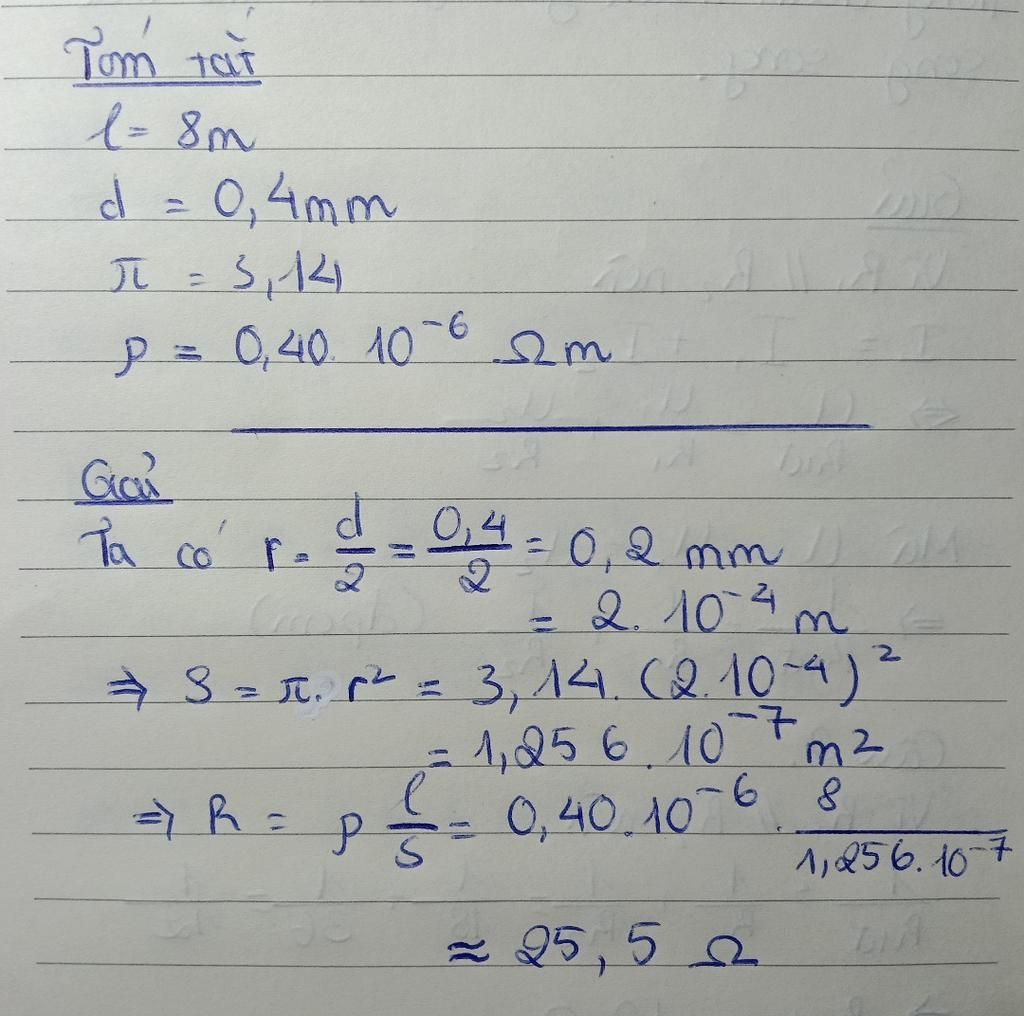 Tóm tắt
l = 8m
d = 0,4mm
π = 3,14
ρ = 0,40. 10⁻⁶ Ωm
Giải
Ta có r = d/2 = 0,4/2 = 0,2 mm
= 2. 10⁻⁴ m
⇒ S = π. r² = 3,14. (2.10⁻⁴)²
= 1,256. 10⁻⁷ m²
⇒ R = ρ l/S = 0,40.10⁻⁶ . 8/1,256.10⁻⁷
≈ 25,5 Ω